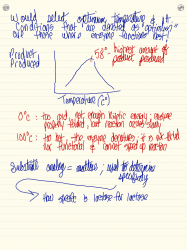 Would select optimum temperature & pH.
Conditions that are denoted as "optimum"
are those where enzyme functions best;
Product
Produced
58° highest amount of
product produced
Temperature (°C)
0°C : too cold, not enough kinetic energy; enzyme
properly folded, but reaction occurs slowly
100°C : too hot, the enzyme denatures; it is not folded
functional & cannot speed up reaction
Substrate analog = another; used to determine
specificity
How specific is lactase for lactose